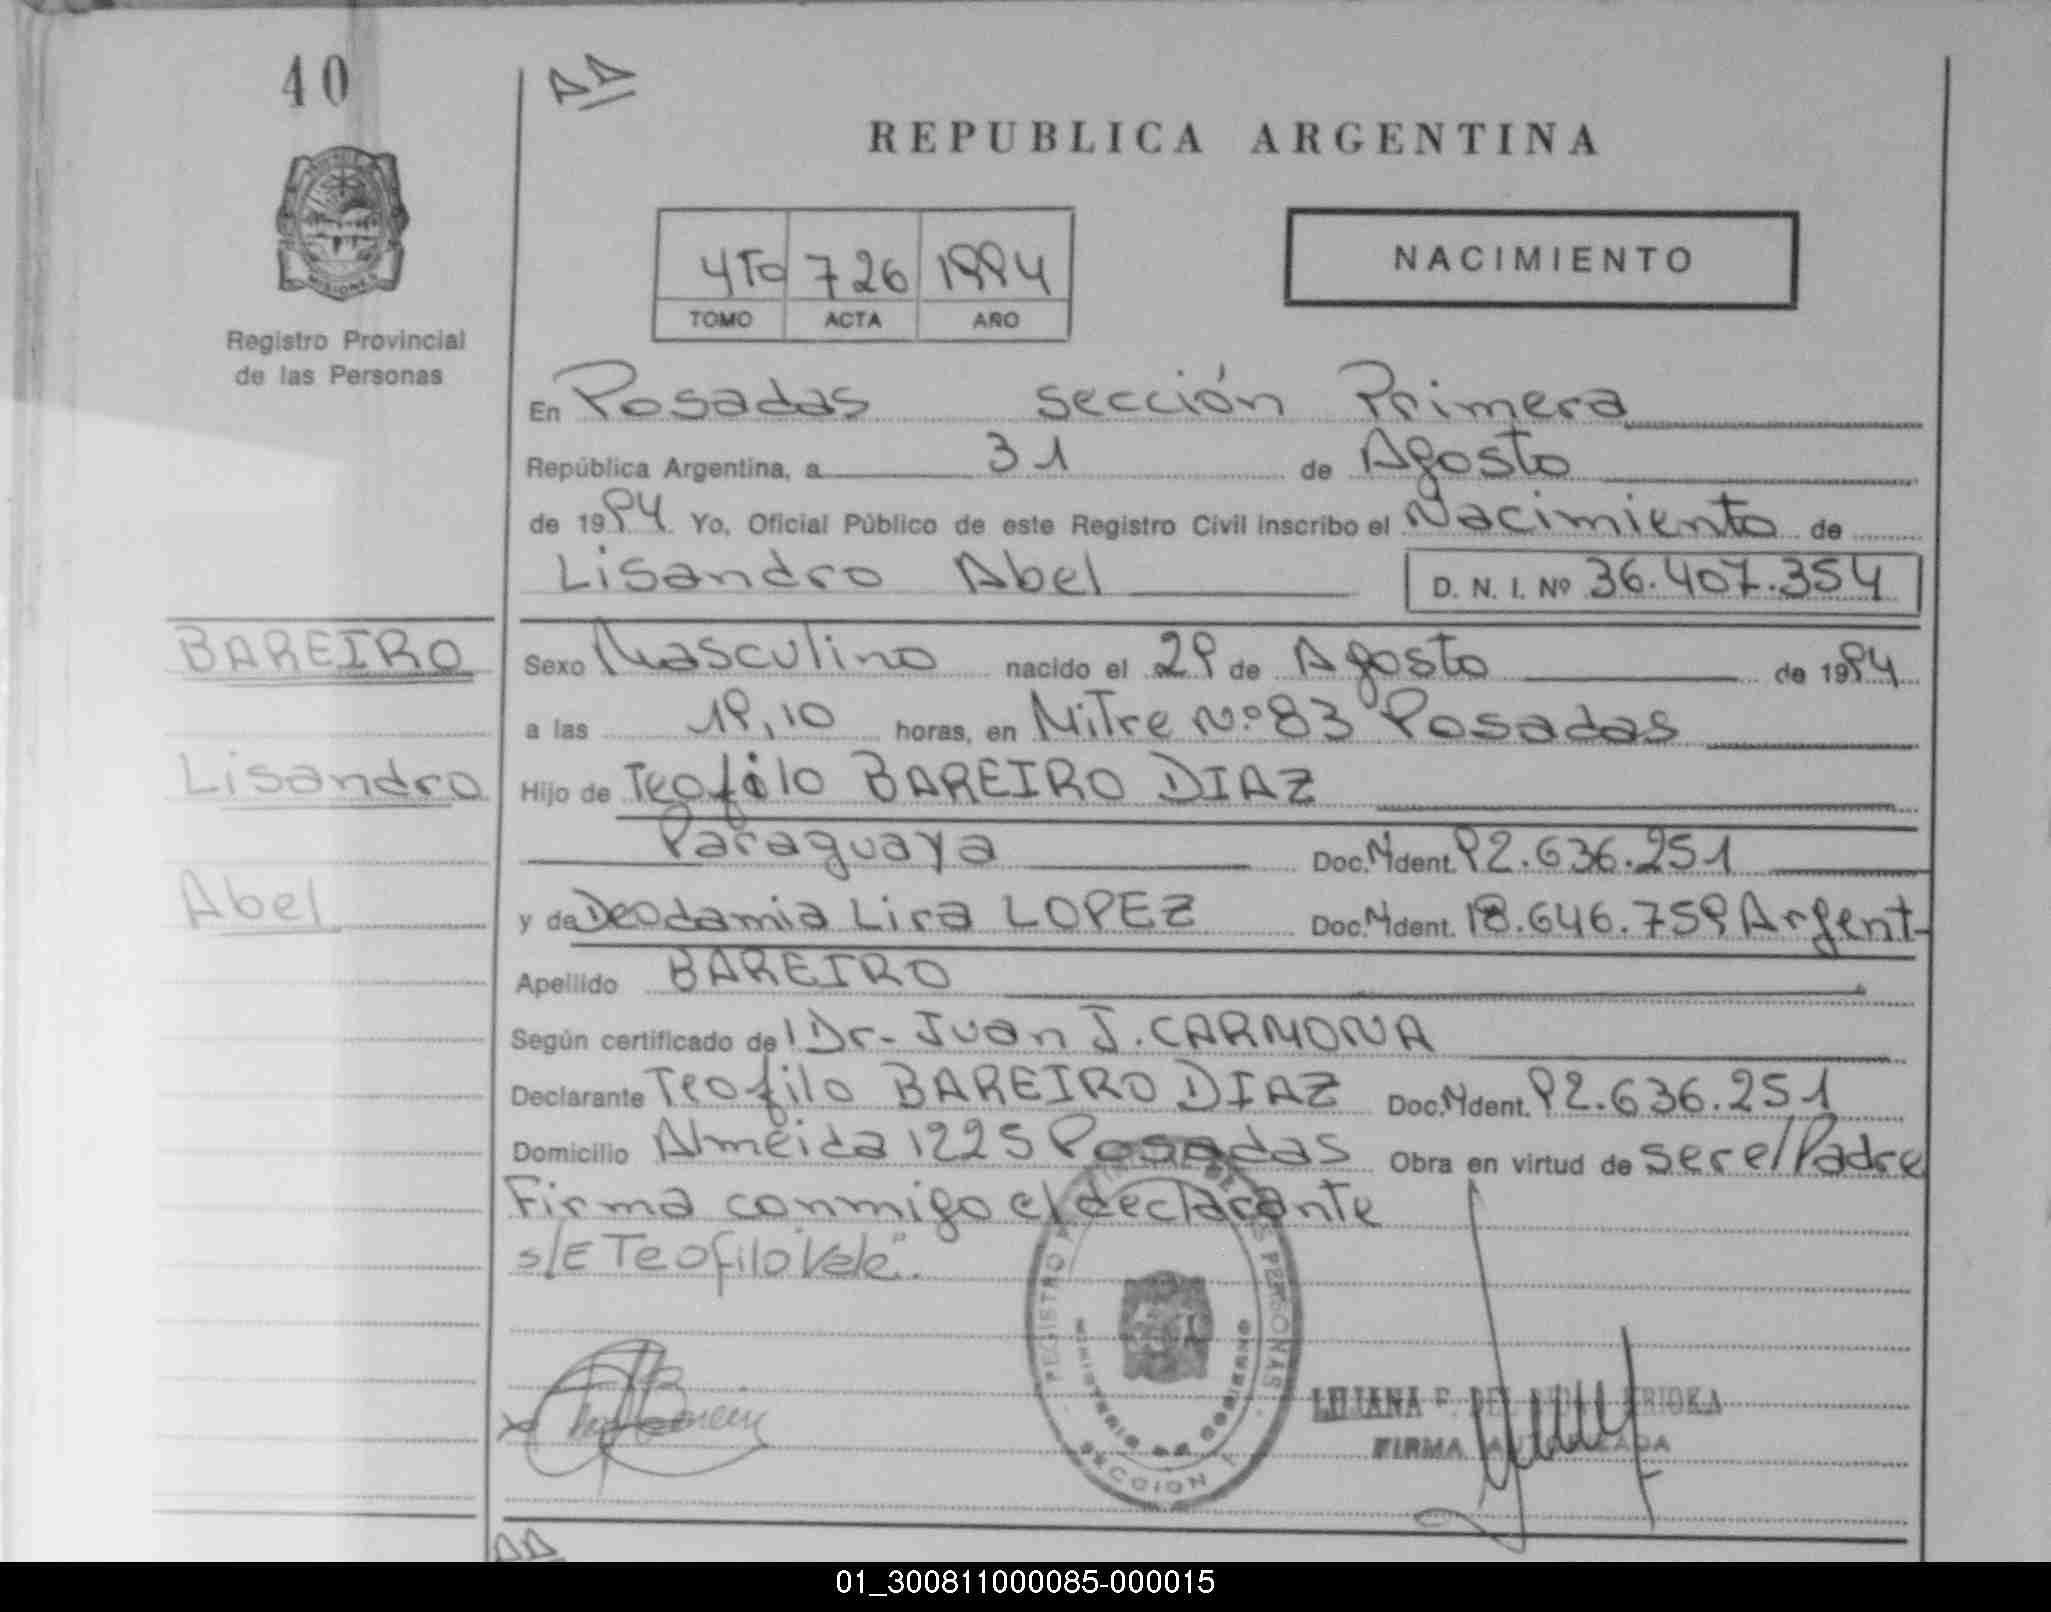 40
AA
REPUBLICA ARGENTINA
NACIMIENTO
4To 726 1994
TOMO ACTA AÑO
MISIONES
Registro Provincial
de las Personas
En Posadas sección Primera
República Argentina, a 31 de Agosto
de 1994 Yo, Oficial Público de este Registro Civil inscribo el Nacimiento de
Lisandro Abel D. N. I. Nº 36.407.354
BAREIRO
Lisandro
Abel
Sexo Masculino nacido el 29 de Agosto de 1994
a las 19,10 horas, en Mitre Nº 83 Posadas
Hijo de Teofilo BAREIRO DIAZ
Paraguaya Doc. Ident. 92.636.251
y de Deodamia Lira LOPEZ Doc. Ident. 18.646.759 Argent-
Apellido BAREIRO
Según certificado de l Dr- Juan J. CARMONA
Declarante Teofilo BAREIRO DIAZ Doc. Ident. 92.636.251
Domicilio Almeida 1225 Posadas Obra en virtud de ser el Padre
Firma conmigo el declarante
s/E Teofilo "Vale".
REGISTRO DE LAS PERSONAS
MINISTERIO DE GOBIERNO
SECCION 1
LILIANA F. DEL
FIRMA AUTORIZADA
AA
01_300811000085-000015